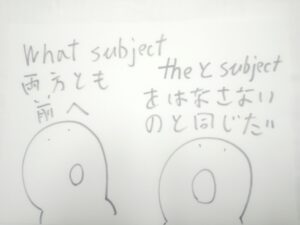 What subject
両方とも
前へ
theとsubject
をはなさない
のと同じだ!!